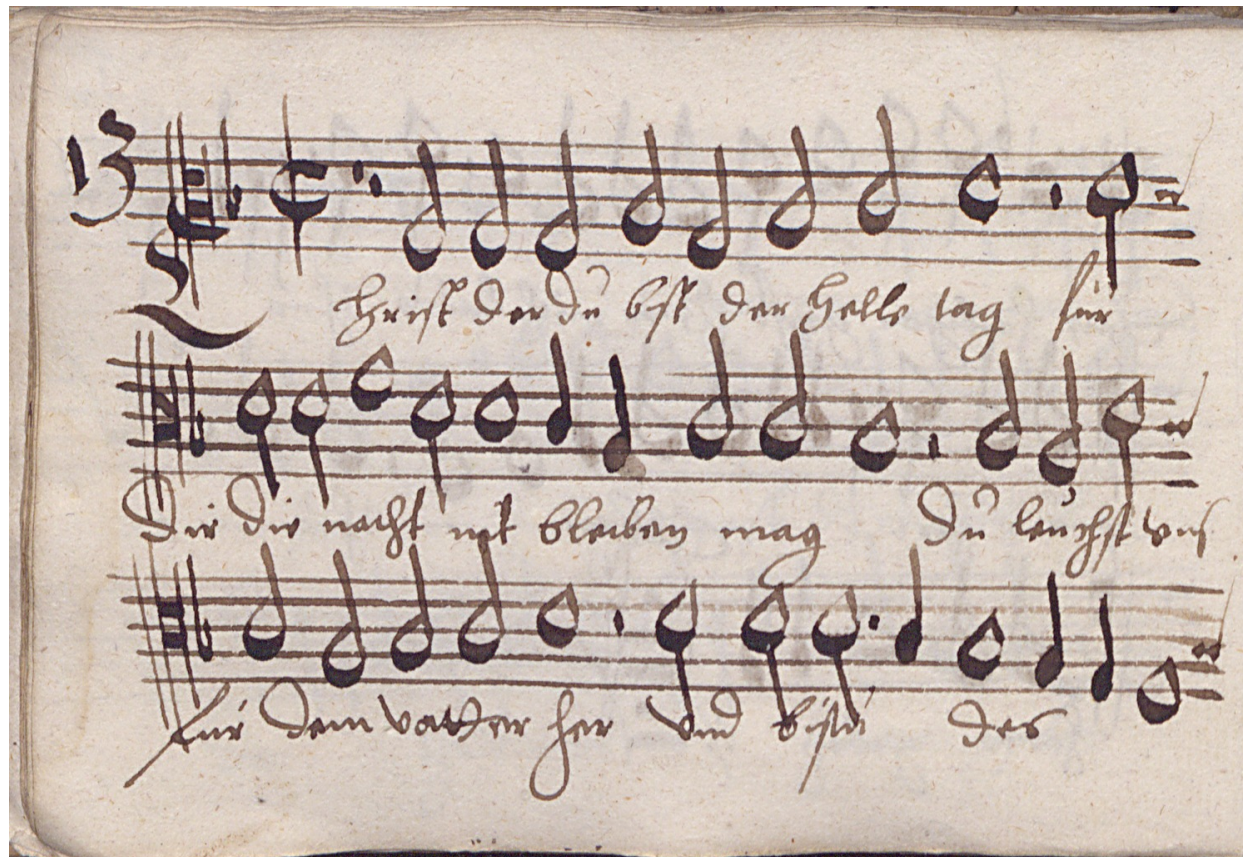 13
Christ der du bist der helle tag für
dir die nacht nit bleiben mag Du leuchst vns
für dem vatter her vnd bistu des